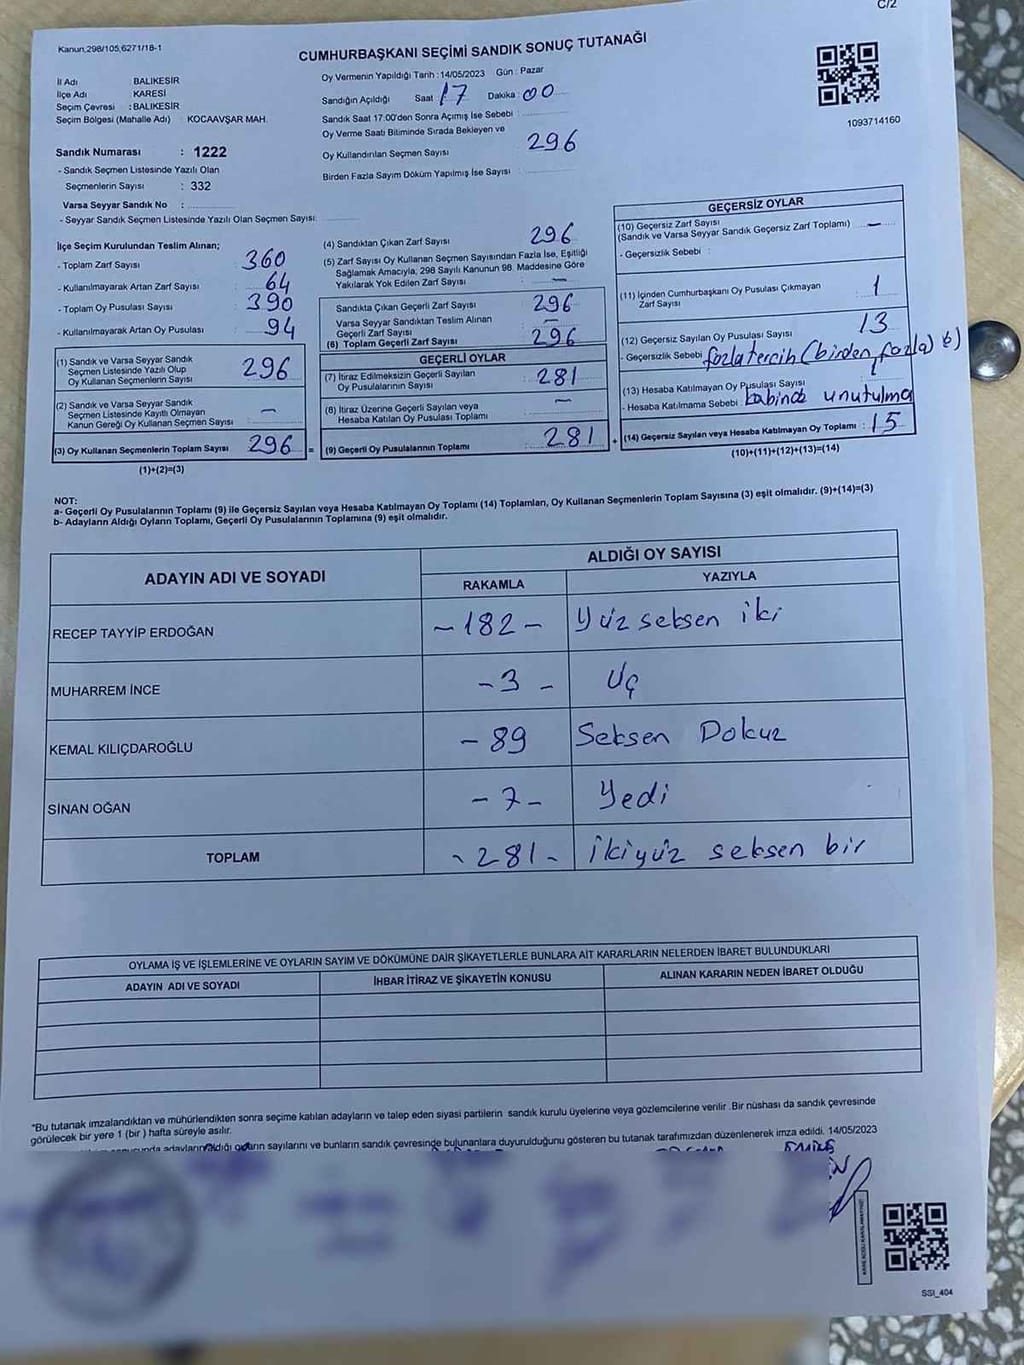 C/2
Kanun,298/105,6271/18-1
CUMHURBAŞKANI SEÇİMİ SANDIK SONUÇ TUTANAĞI
İl Adı : BALIKESİR
İlçe Adı : KARESİ
Seçim Çevresi : BALIKESİR
Seçim Bölgesi (Mahalle Adı) : KOCAAVŞAR MAH.
Oy Vermenin Yapıldığı Tarih :14/05/2023 Gün : Pazar
Sandığın Açıldığı Saat 17 Dakika 00
Sandık Saat 17.00'den Sonra Açımış İse Sebebi :
Oy Verme Saati Bitiminde Sırada Bekleyen ve
Oy Kullandırılan Seçmen Sayısı : 296
Birden Fazla Sayım Döküm Yapılmış İse Sayısı :
1093714160
Sandık Numarası : 1222
- Sandık Seçmen Listesinde Yazılı Olan
Seçmenlerin Sayısı : 332
Varsa Seyyar Sandık No :
- Seyyar Sandık Seçmen Listesinde Yazılı Olan Seçmen Sayısı:
İlçe Seçim Kurulundan Teslim Alınan;
- Toplam Zarf Sayısı : 360
- Kullanılmayarak Artan Zarf Sayısı : 64
- Toplam Oy Pusulası Sayısı : 390
- Kullanılmayarak Artan Oy Pusulası : 94
(1) Sandık ve Varsa Seyyar Sandık
Seçmen Listesinde Yazılı Olup
Oy Kullanan Seçmenlerin Sayısı : 296
(2) Sandık ve Varsa Seyyar Sandık
Seçmen Listesinde Kayıtlı Olmayan
Kanun Gereği Oy Kullanan Seçmen Sayısı : –
(3) Oy Kullanan Seçmenlerin Toplam Sayısı 296 =
(1)+(2)=(3)
(4) Sandıktan Çıkan Zarf Sayısı : 296
(5) Zarf Sayısı Oy Kullanan Seçmen Sayısından Fazla İse, Eşitliği
Sağlamak Amacıyla, 298 Sayılı Kanunun 98. Maddesine Göre
Yakılarak Yok Edilen Zarf Sayısı : –
Sandıkta Çıkan Geçerli Zarf Sayısı : 296
Varsa Seyyar Sandıktan Teslim Alınan
Geçerli Zarf Sayısı : –
(6) Toplam Geçerli Zarf Sayısı : 296
GEÇERLİ OYLAR
(7) İtiraz Edilmeksizin Geçerli Sayılan
Oy Pusulalarının Sayısı : 281
(8) İtiraz Üzerine Geçerli Sayılan veya
Hesaba Katılan Oy Pusulası Toplamı : –
(9) Geçerli Oy Pusulalarının Toplamı : 281 +
GEÇERSİZ OYLAR
(10) Geçersiz Zarf Sayısı
(Sandık ve Varsa Seyyar Sandık Geçersiz Zarf Toplamı) : –
- Geçersizlik Sebebi :
(11) İçinden Cumhurbaşkanı Oy Pusulası Çıkmayan
Zarf Sayısı : 1
(12) Geçersiz Sayılan Oy Pusulası Sayısı : 13
- Geçersizlik Sebebi : fazla tercih (birden fazla)
(13) Hesaba Katılmayan Oy Pusulası Sayısı : 1
- Hesaba Katılmama Sebebi : kabinde unutulma
(14) Geçersiz Sayılan veya Hesaba Katılmayan Oy Toplamı : 15
(10)+(11)+(12)+(13)=(14)
NOT:
a- Geçerli Oy Pusulalarının Toplamı (9) ile Geçersiz Sayılan veya Hesaba Katılmayan Oy Toplamı (14) Toplamları, Oy Kullanan Seçmenlerin Toplam Sayısına (3) eşit olmalıdır. (9)+(14)=(3)
b- Adayların Aldığı Oyların Toplamı, Geçerli Oy Pusulalarının Toplamına (9) eşit olmalıdır.
ADAYIN ADI VE SOYADI
ALDIĞI OY SAYISI
RAKAMLA YAZIYLA
RECEP TAYYİP ERDOĞAN – 182 – Yüz seksen iki
MUHARREM İNCE – 3 – Üç
KEMAL KILIÇDAROĞLU – 89 Seksen Dokuz
SİNAN OĞAN – 7 – Yedi
TOPLAM – 281 – ikiyüz seksen bir
OYLAMA İŞ VE İŞLEMLERİNE VE OYLARIN SAYIM VE DÖKÜMÜNE DAİR ŞİKAYETLERLE BUNLARA AİT KARARLARIN NELERDEN İBARET BULUNDUKLARI
ADAYIN ADI VE SOYADI İHBAR İTİRAZ VE ŞİKAYETİN KONUSU ALINAN KARARIN NEDEN İBARET OLDUĞU
*Bu tutanak imzalandıktan ve mühürlendikten sonra seçime katılan adayların ve talep eden siyasi partilerin sandık kurulu üyelerine veya gözlemcilerine verilir .Bir nüshası da sandık çevresinde
görülecek bir yere 1 (bir ) hafta süreyle asılır.
adayların aldığı oyların sayılarını ve bunların sandık çevresinde bulunanlara duyurulduğunu gösteren bu tutanak tarafımızdan düzenlenerek imza edildi. 14/05/2023
SSI_404